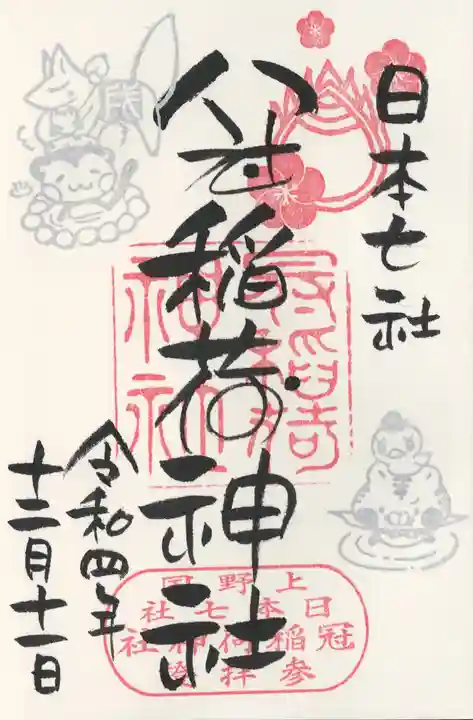 日本七社
八社稲荷神社
令和四年
十二月十一日
冠稲荷
神社
上野国
日本七社
冠稲荷神社
参拝